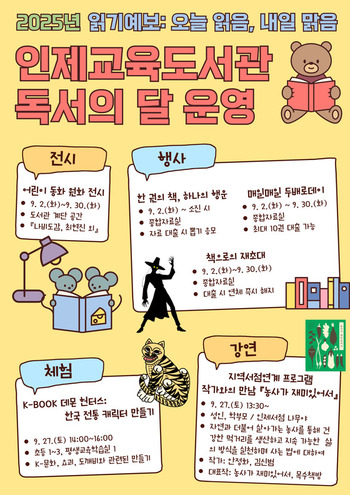 2025년 읽기예보: 오늘 읽음, 내일 맑음
인제교육도서관
독서의 달 운영
전시
어린이 동화 원화 전시
9. 2.(화)~9. 30.(화)
도서관 계단 공간
『나비도감, 최현진 외』
행사
한 권의 책, 하나의 행운
9. 2.(화) ~ 소진 시
종합자료실
자료 대출 시 뽑기 응모
매일매일 두배로데이
9. 2.(화) ~ 9. 30.(화)
종합자료실
최대 10권 대출 가능
책으로의 재초대
9. 2.(화)~9. 30.(화)
종합자료실
대출 시 연체 즉시 해지
체험
K-BOOK 데몬 헌터스:
한국 전통 캐릭터 만들기
9. 27.(토) 14:00~16:00
초등 1~3, 평생교육학습실 1
K-문화, 요괴, 도깨비와 관련된 만들기
강연
지역서점연계 프로그램
작가와의 만남 『농사가 재미있어서』
9. 27.(토) 13:30~
성인, 학부모 / 인제서점 나무야
자연과 더불어 살아가는 농사를 통해 건
강한 먹거리를 생산하고 지속 가능한 삶
의 방식을 실천하며 사는 법에 대하여
작가: 안정화, 김신범
대표작: 농사가 재미있어서, 목수책방